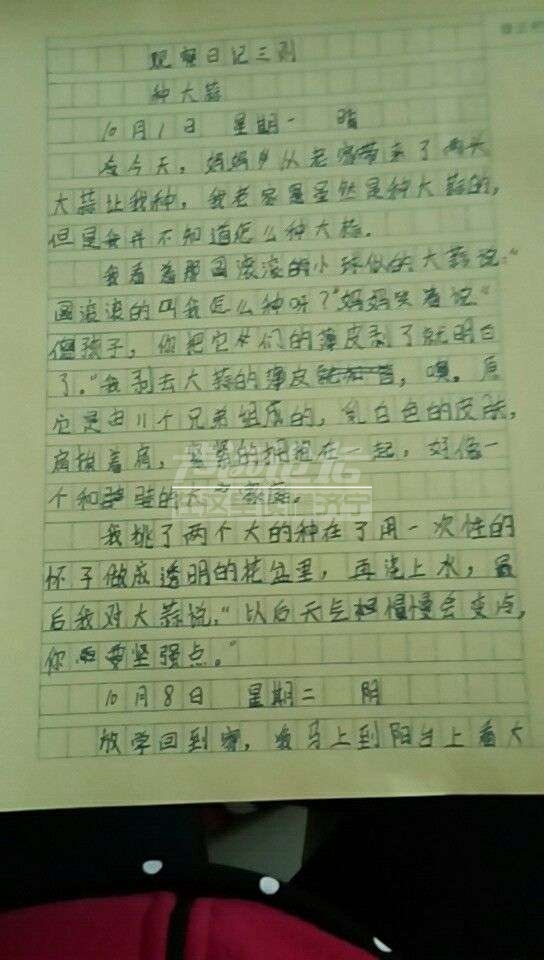 观察日记三则
种大蒜
10月1日 星期一 晴
今天，妈妈从老家带来了两头
大蒜让我种，我老家虽然是种大蒜的，
但是我并不知道怎么种大蒜。
我看着那圆滚滚的小球似的大蒜说："
圆滚滚的叫我怎么种呀？"妈妈笑着说"
傻孩子，你把它们的薄皮剥了就明白
了。"我剥去大蒜的薄皮，噢。原
它是由八个兄弟组成的，乳白色的皮肤，
肩挨着肩，紧紧的拥抱在一起，好像一
个和的大家庭。
我挑了两个大的种在了用一次性的
杯子做成透明的花盆里，再浇上水，最
后我对大蒜说："以后天气慢慢会变冷，
你要坚强点。"
10月8日 星期二 阴
放学回到家，我马上到阳台上看大